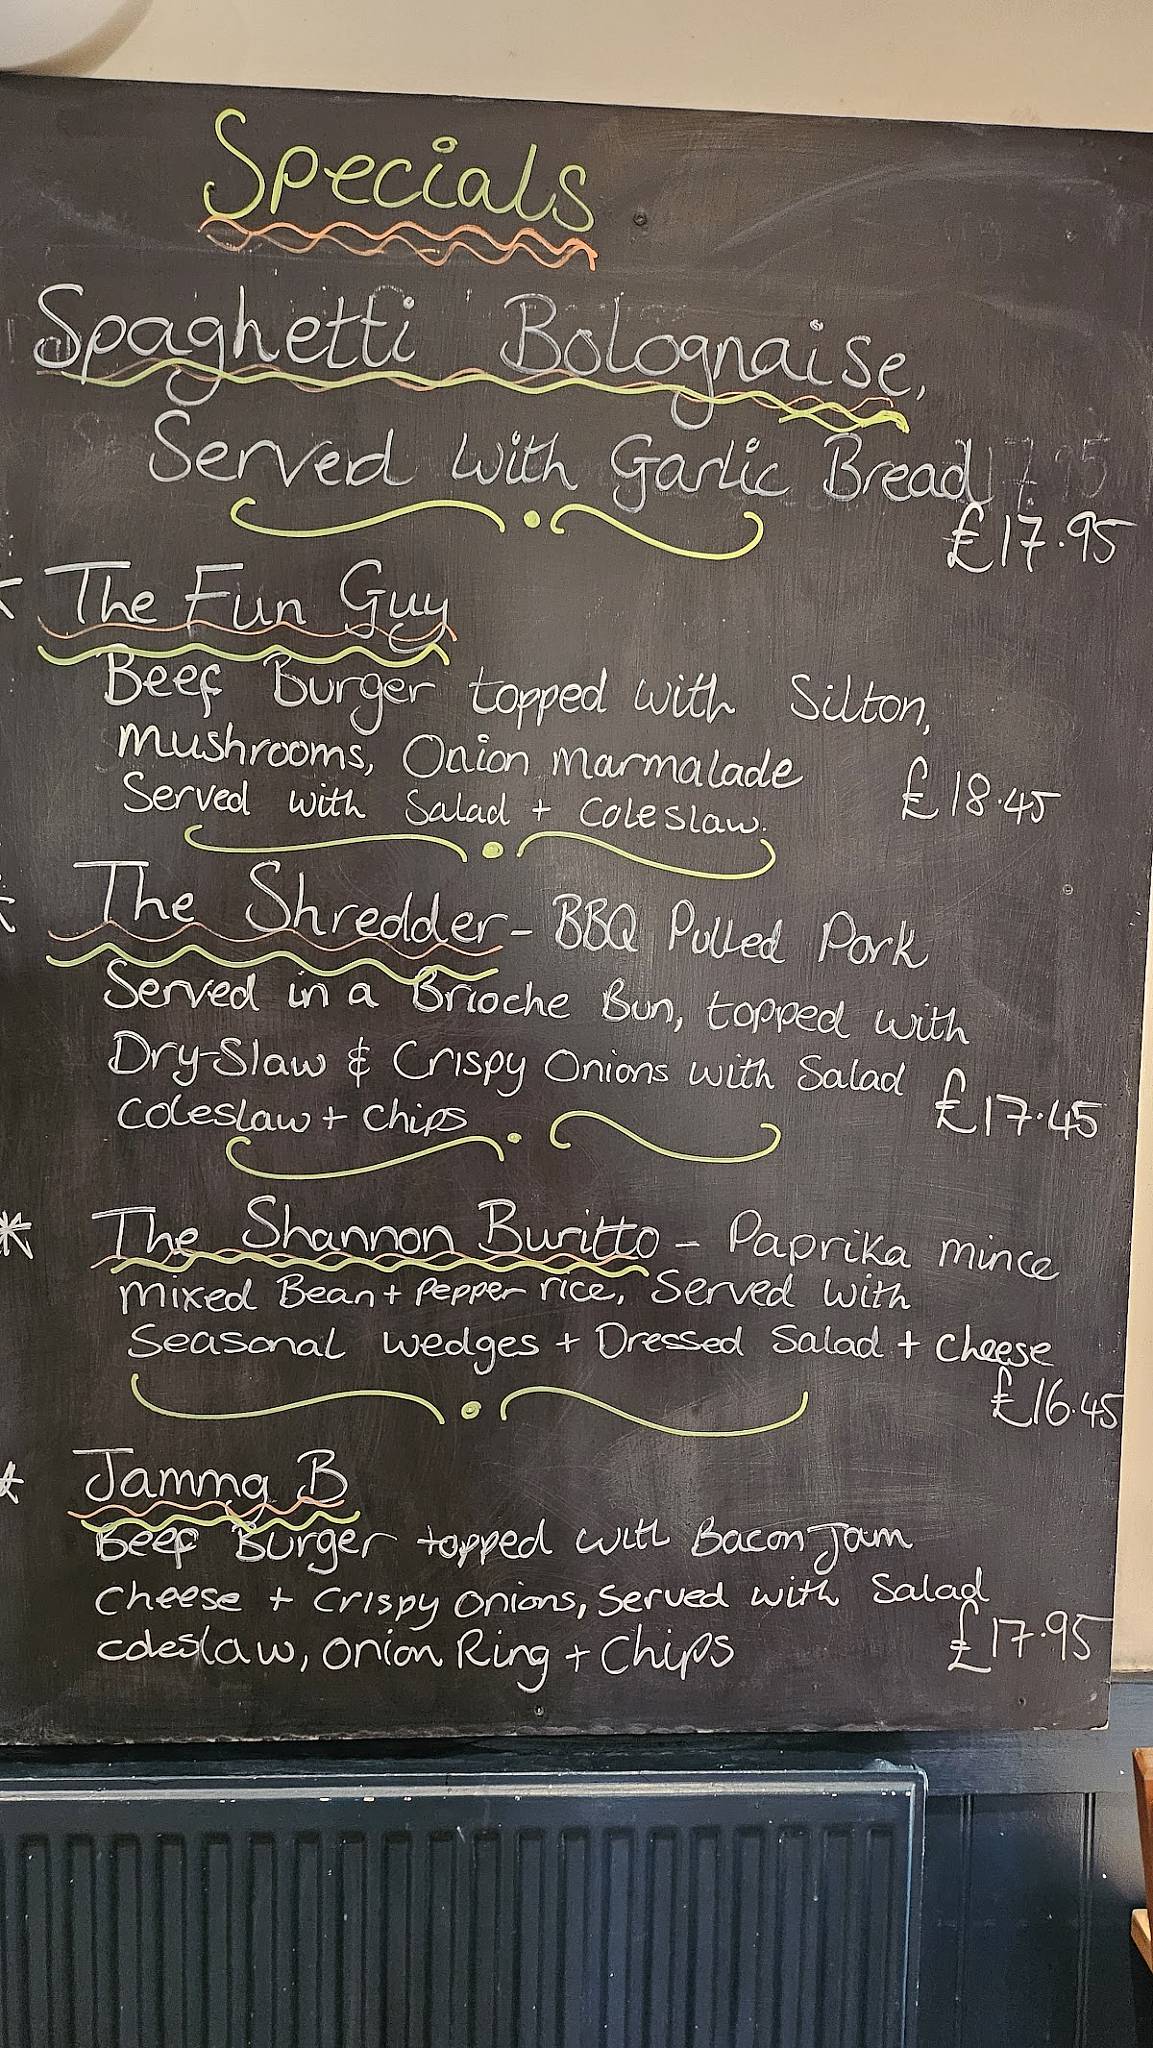 Specials
Spaghetti Bolognaise,
Served with Garlic Bread
£17.95
* The Fun Guy
Beef Burger topped with Silton,
mushrooms, Onion marmalade
£18.45
Served with Salad + Coleslaw.
* The Shredder - BBQ Pulled Pork
Served in a Brioche Bun, topped with
Dry-Slaw & Crispy Onions with Salad
£17.45
Coleslaw + Chips
* The Shannon Buritto - Paprika mince
mixed Bean + Pepper rice, Served with
Seasonal wedges + Dressed Salad + Cheese
£16.45
* Jamma B
Beef Burger topped with Bacon Jam
Cheese + Crispy Onions, Served with Salad
£17.95
coleslaw, Onion Ring + Chips